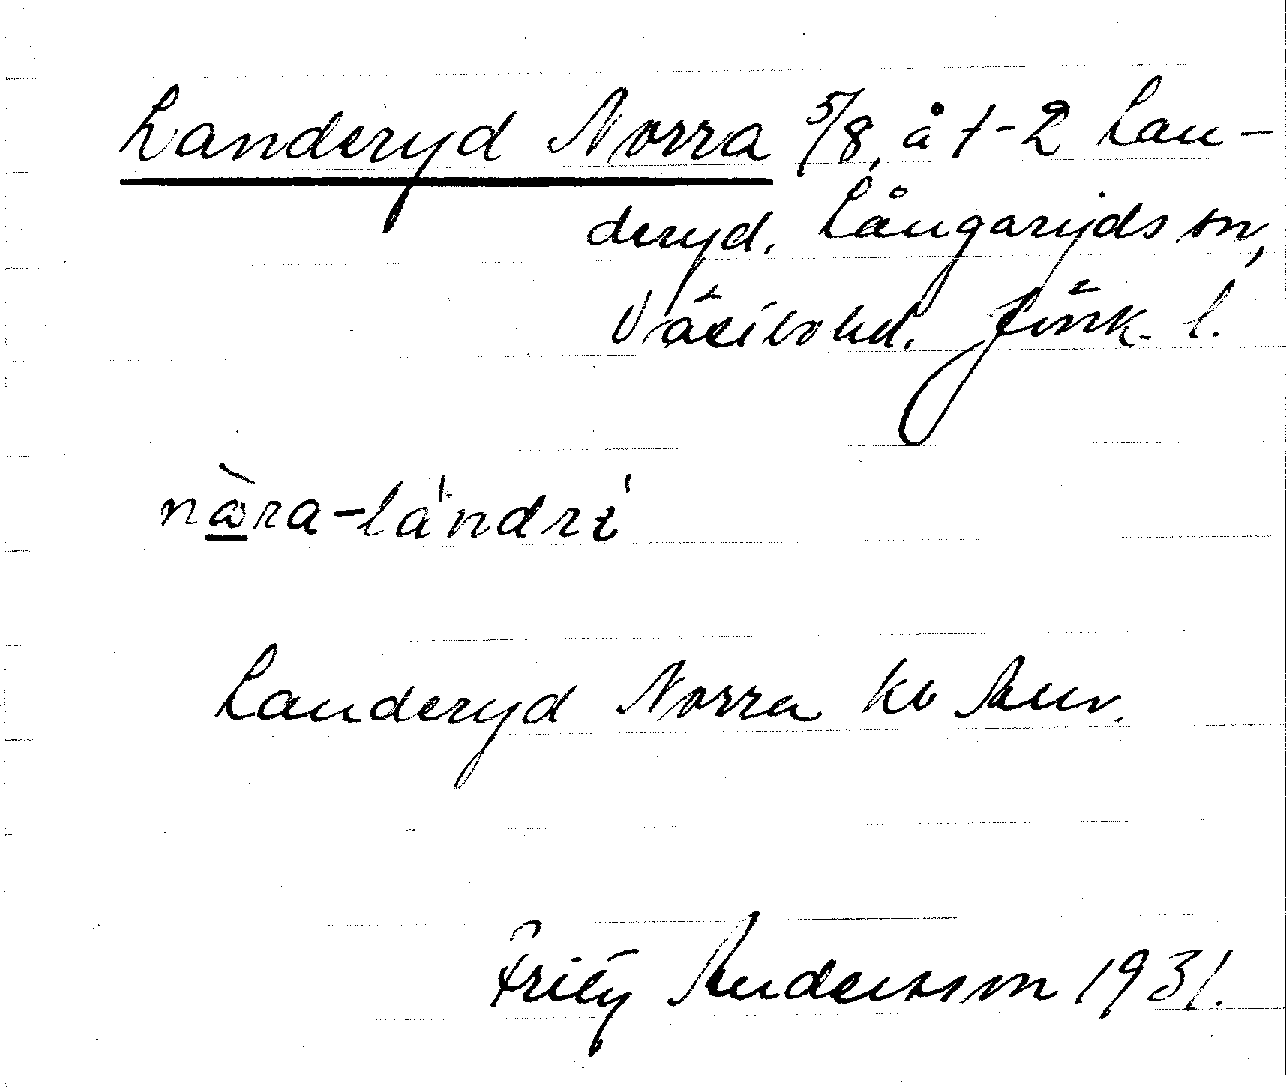 Landeryd Norra 5/8, å 1-2 Lan-
deryd. Långaryds sn,
Västbo hd. Jönk. l.
nära-lándrí
Landeryd Norra kb
Fritz Andersson 1931.